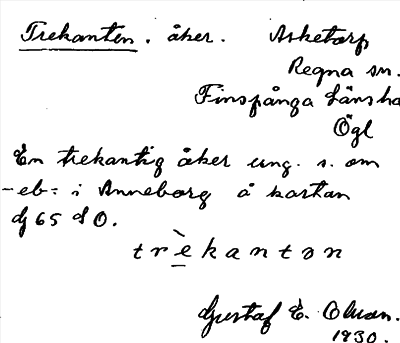 Trekanten. åker. Asketorp
Regna sn.
Finspånga länsha
Ögl
En trekantig åker ung. s. om
-eb- i Anneborg å kartan
dj 65 d O.
trèkantən
Gustaf E. Olsson.
1930.